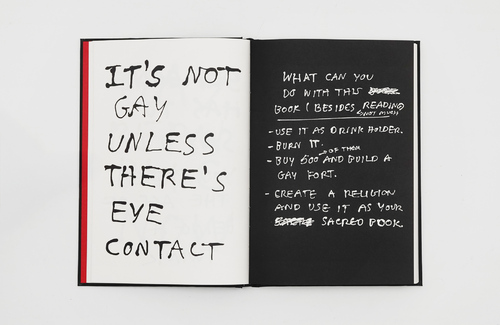 IT'S NOT
GAY
UNLESS
THERE'S
EYE
CONTACT
WHAT CAN YOU
DO WITH THIS
BOOK (BESIDES READING)
(NOT MUCH)
- USE IT AS DRINK HOLDER.
- BURN IT.
OF THEM
- BUY 500 AND BUILD A
GAY FORT.
- CREATE A RELIGION
AND USE IT AS YOUR
SACRED BOOK